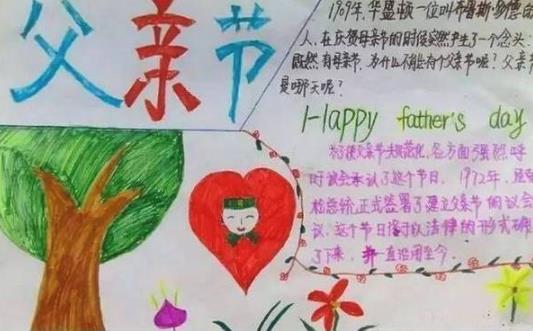 父亲节
1909年,华盛顿一位叫布鲁斯·多德的
人,在庆贺母亲节的时候突然产生了一个念头:
既然有母亲节,为什么不能有个父亲节呢?父亲节
是哪天呢?
Happy father's day
为了使父亲节规范化,各方面强烈呼
议会承认了这个节日。1972年,
总统正式签署了建立父亲节的议会
议,这个节日终于以法律的形式确
了下来,并一直沿用至今。